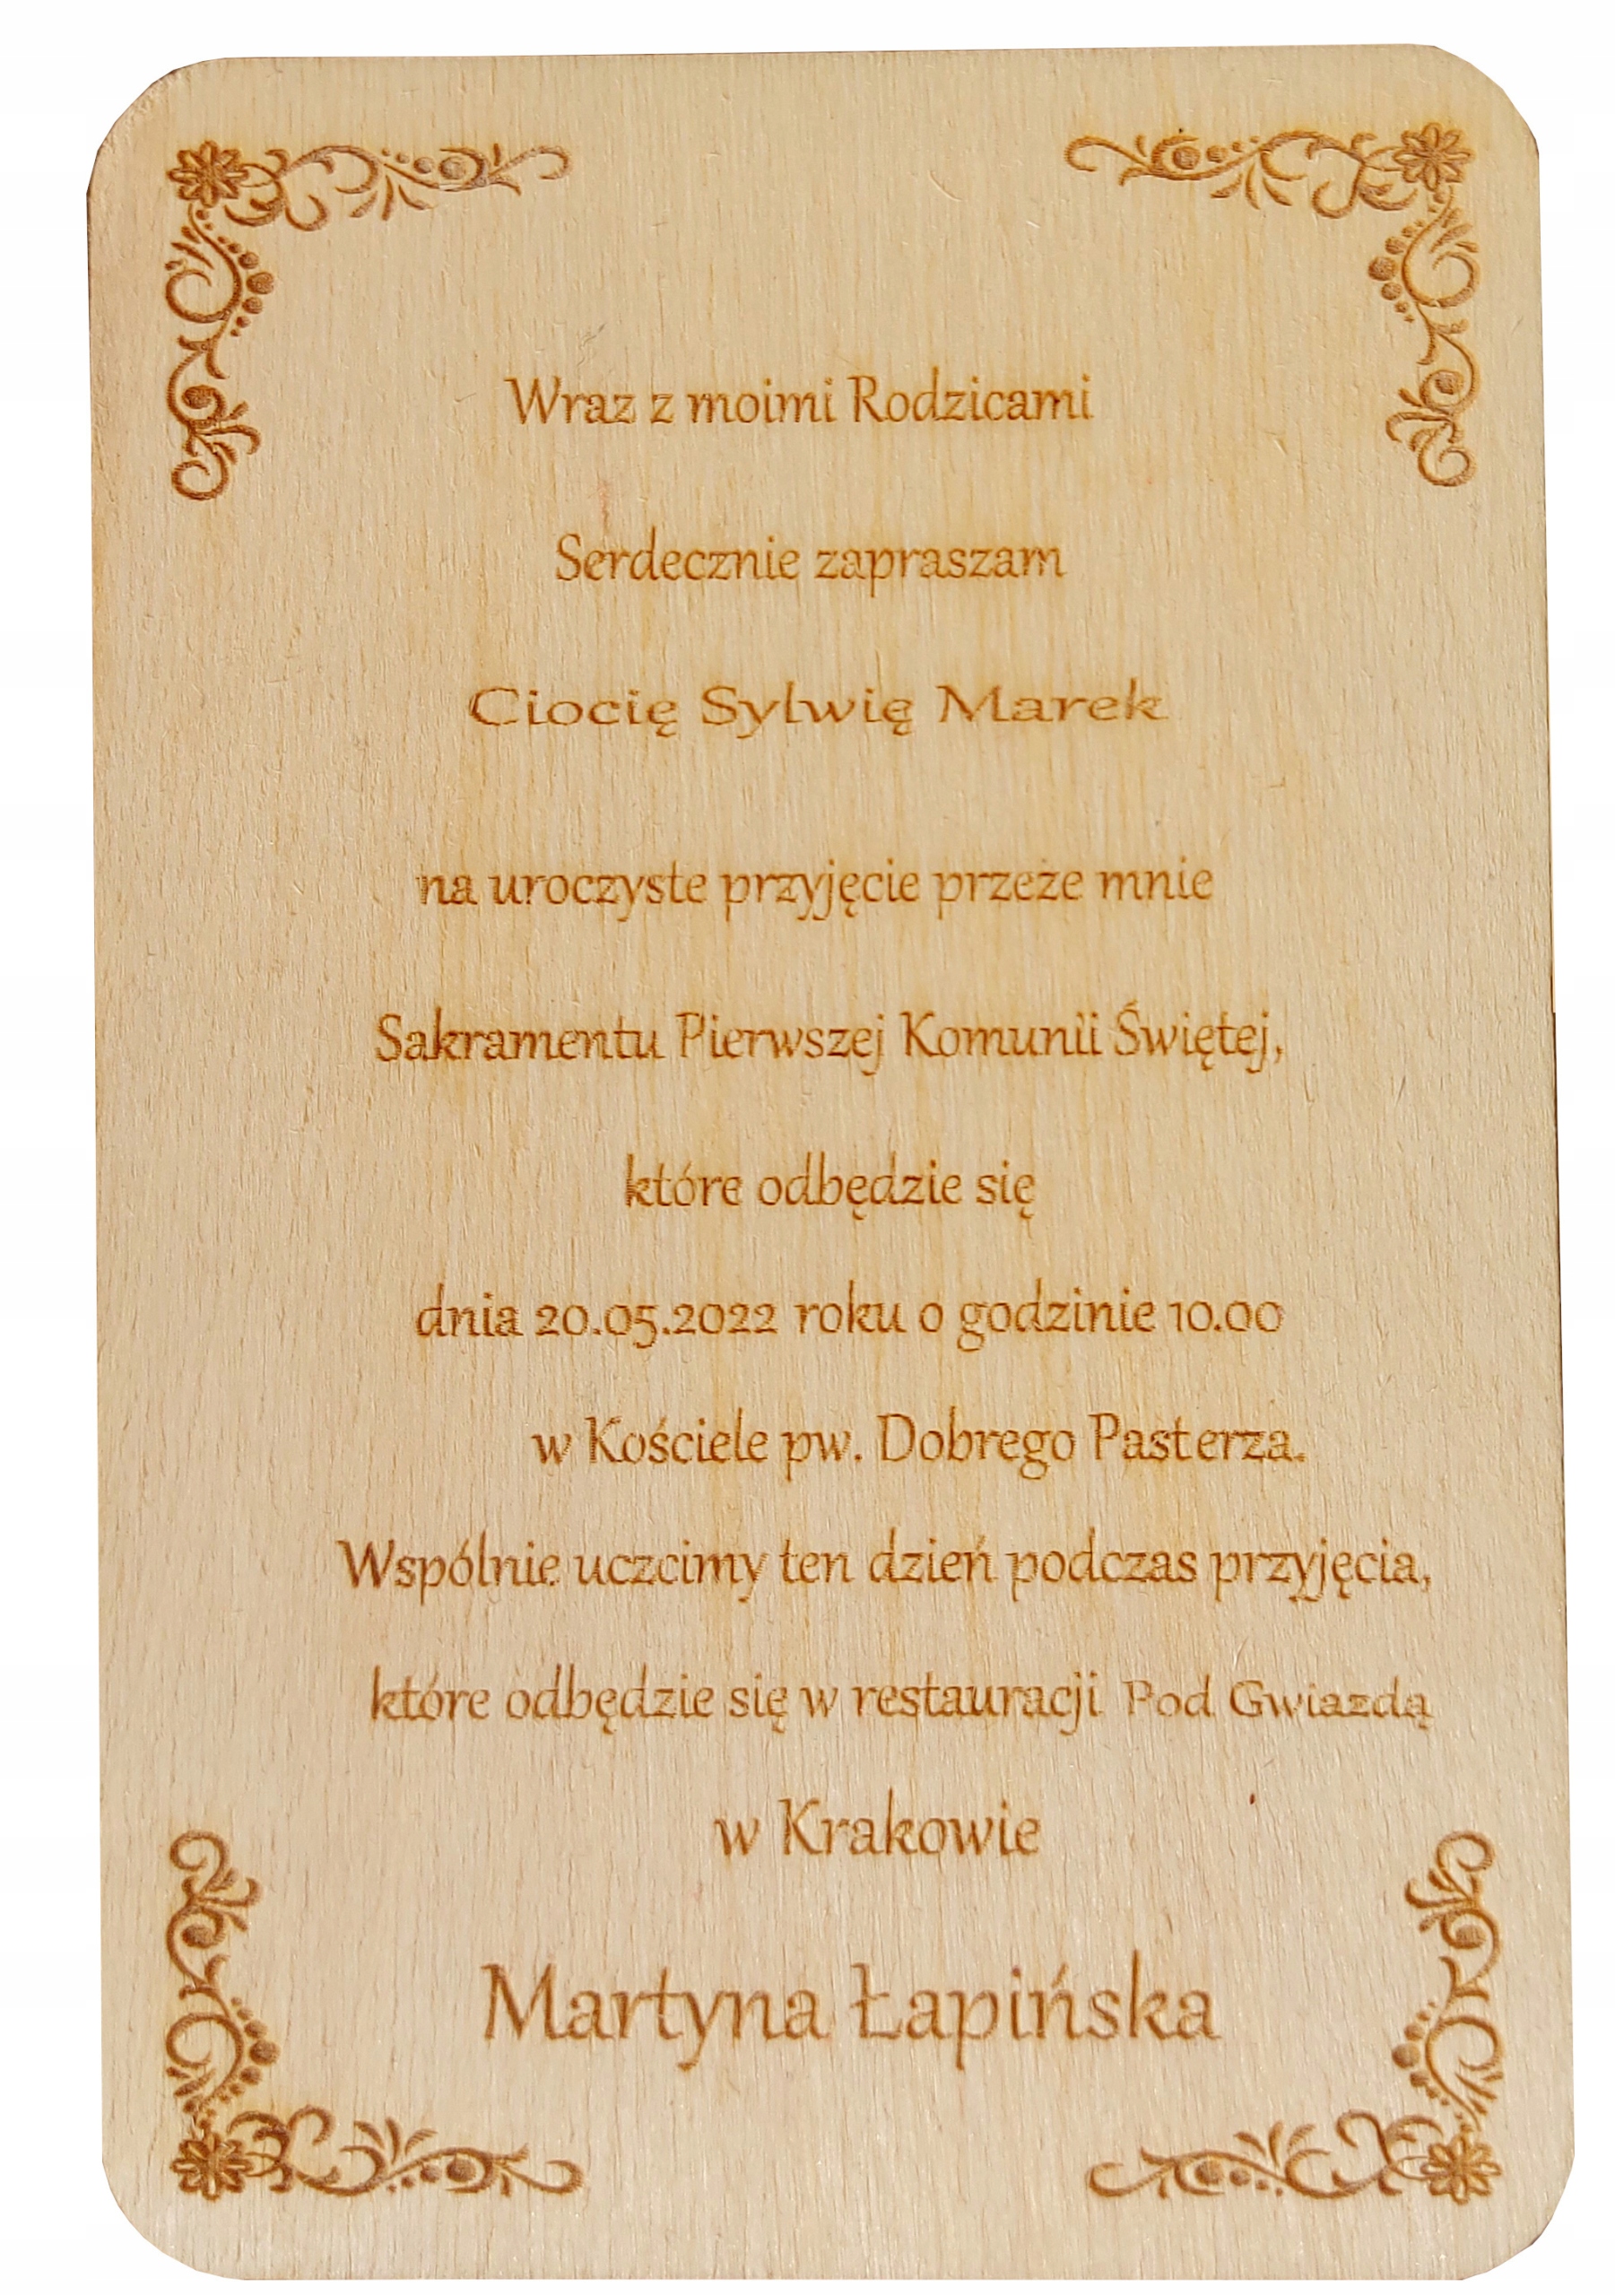 Wraz z moimi Rodzicami
Serdecznie zapraszam
Ciocię Sylwię Marek
na uroczyste przyjęcie przeże mnie
Sakramentu Pierwszej Komunii Świętej,
które odbędzie się
dnia 20.05.2022 roku o godzinie 10.00
w Kościele pw. Dobrego Pasterza.
Wspólnie uczcimy ten dzień podczas przyjęcia,
które odbędzie się w restauracji Pod Gwiazdą
w Krakowie
Martyna Łapińska